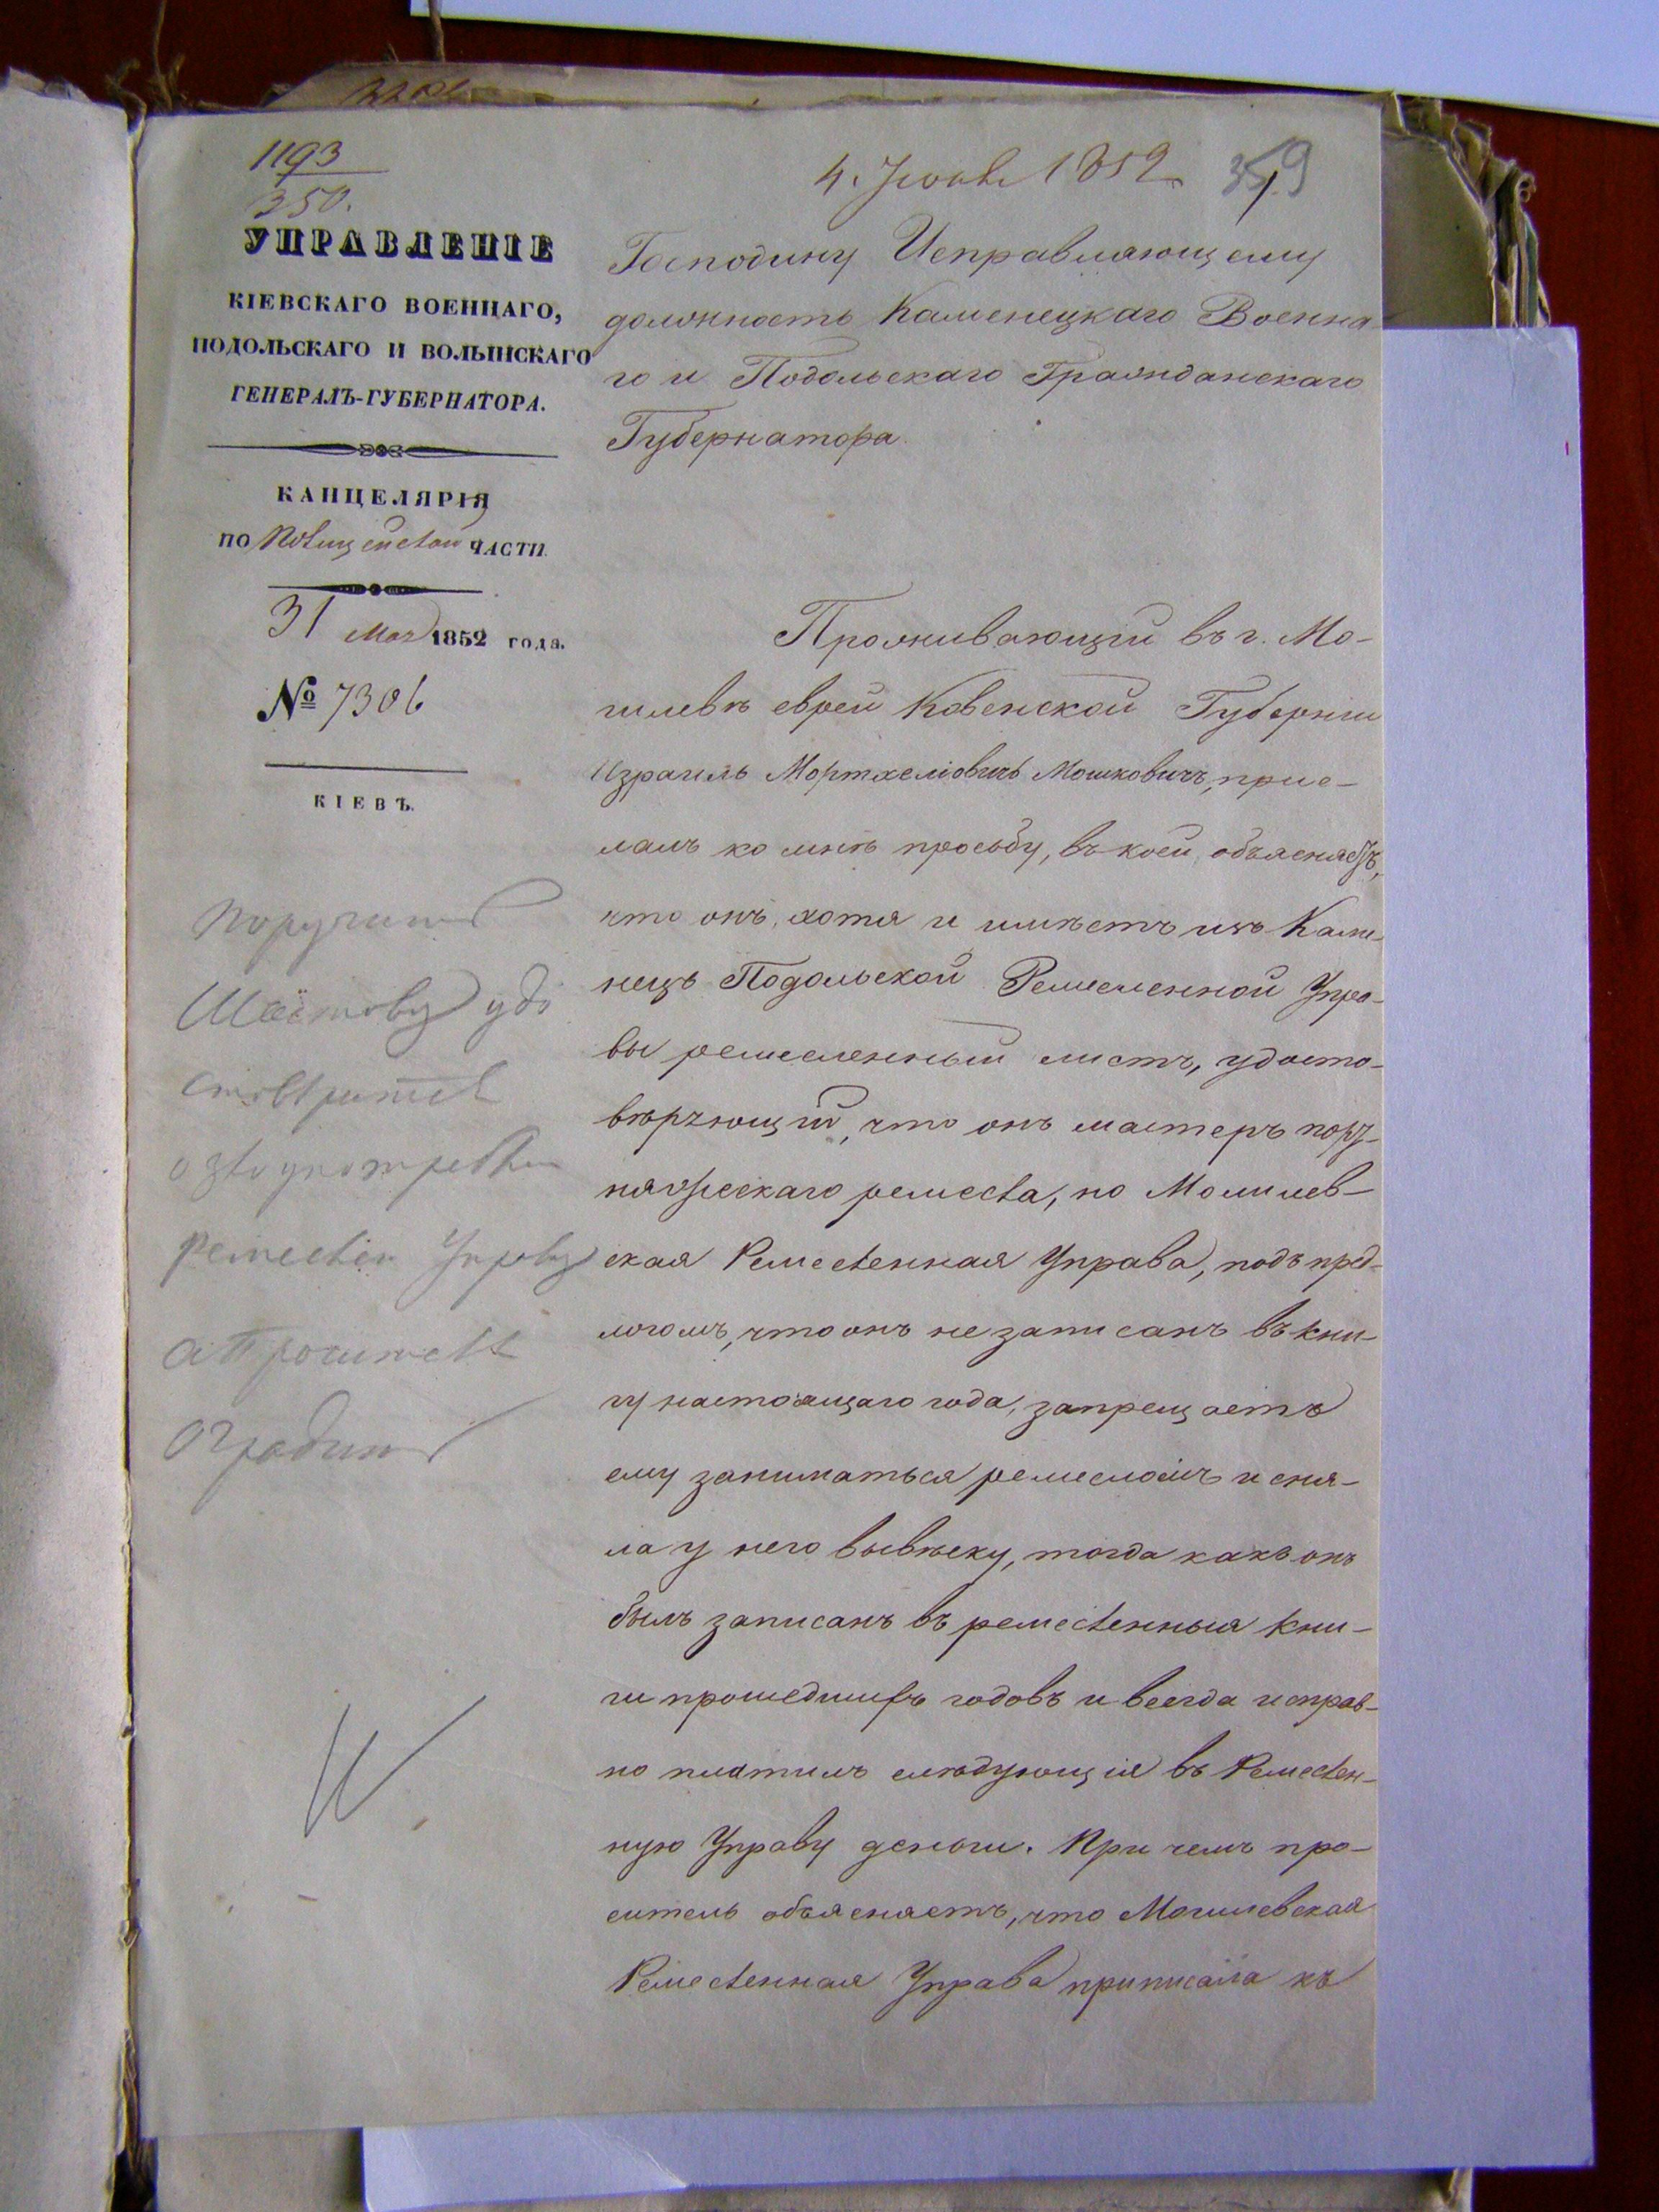 1193
350.
4. Июня 1852
359
УПРАВЛЕНІЕ
КІЕВСКАГО ВОЕННАГО,
ПОДОЛЬСКАГО И ВОЛЫНСКАГО
ГЕНЕРАЛЪ-ГУБЕРНАТОРА.
КАНЦЕЛЯРІЯ
ПО Полицейской ЧАСТИ.
31 Мая 1852 года.
№ 7306
КІЕВЪ.
Господину Исправляющему
должность Каменецкаго Военна-
го и Подольскаго Гражданскаго
Губернатора.
Проживающій въ г. Мо-
гилевѣ еврей Ковенской Губерніи
Израиль Мортхеліовичъ Мошковичъ, прис-
лалъ ко мнѣ просьбу, въ коей объясняетъ,
что онъ, хотя и имѣетъ изъ Каме-
нецъ Подольской Ремесленной Упра-
вы ремесленный листъ, удосто-
вѣряющій, что онъ мастеръ порт-
няжескаго ремесла, но Могилев-
ская Ремесленная Управа, подъ пред-
логомъ, что онъ не записанъ въ кни-
гу настоящаго года, запрещаетъ
ему заниматься ремесломъ и сня-
ла у него вывѣску, тогда какъ онъ
былъ записанъ въ ремесленныя кни-
ги прошедшихъ годовъ и всегда исправ-
но платилъ слѣдующія въ Ремеслен-
ную Управу деньги. При чемъ про-
ситель объясняетъ, что Могилевская
Ремесленная Управа приписала къ
Поручить
удо
стовѣриться
о злоупотреблен
Ремеслен Управы
а Просителя
оградить